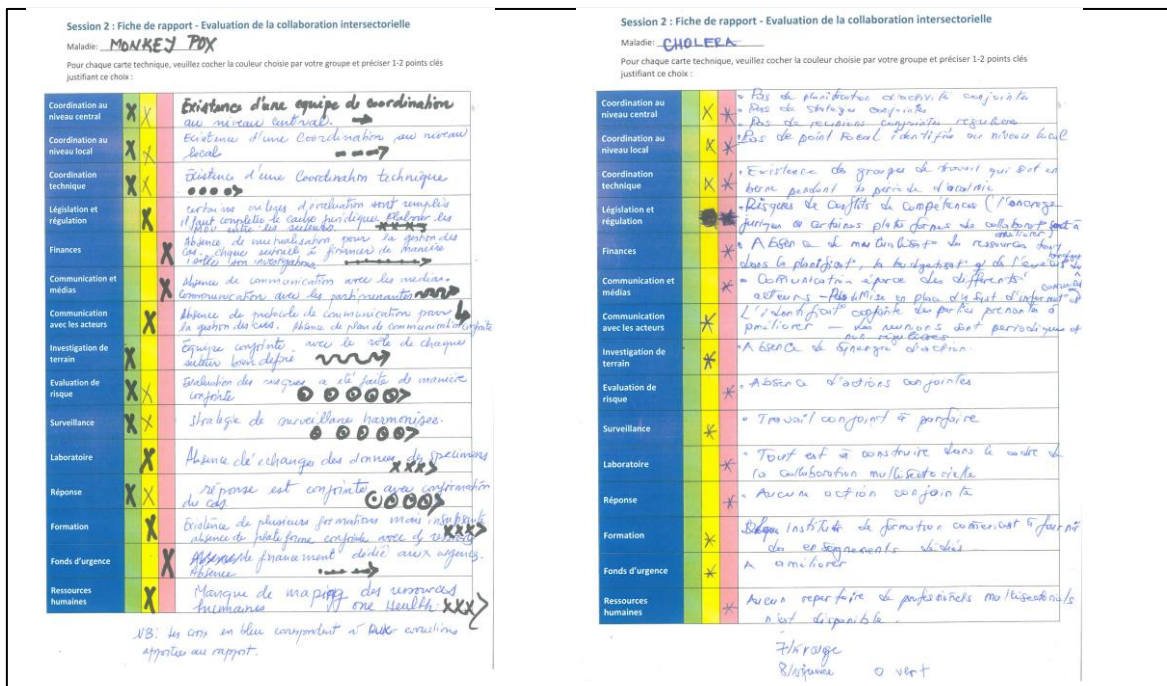 Session 2 : Fiche de rapport - Evaluation de la collaboration intersectorielle
Maladie: MONKEY POX
Pour chaque carte technique, veuillez cocher la couleur choisie par votre groupe et préciser 1-2 points clés
justifiant ce choix :
Coordination au
niveau central
X X
Existence d'une equipe de coordination
au niveau central.
Coordination au
niveau local
X X
Existence d'une Coordination au niveau
local
Coordination
technique
X X
Existence d'une Coordination technique
Législation et
régulation
X
certains outils d'évaluation sont remplis
il faut completer le cadre juridique Elaborer les
MOU entre les secteurs XXXX
Finances
X
Absence de mutualisation pour la gestion des
cas. chaque secteur à financer de manière
isolée son investigation
Communication et
médias
X
Absence de communication avec les medias.
communication avec les partiprenantes
Communication
avec les acteurs
X
Absence de protocole de communication pour
la gestion des cas. Absence de plan de communication conjointe
Investigation de
terrain
X
Equipe conjointe avec le rôle de chaque
secteur bien defini
Evaluation de
risque
X X
Evaluation des risques a été faite de manière
conjointe
Surveillance
X X
Strategie de surveillance harmonisée.
Laboratoire
X
Absence d'échanges des données des specimens
XXX
Réponse
X X
réponse est conjointe avec confirmation
du cas
Formation
X
Existence de plusieurs formations mais insuffisante
absence de plateforme conjointe avec XXX
Fonds d'urgence
X
de financement dédié aux urgences.
Absence
Ressources
humaines
X
Manque de mapping des ressources
humaines one Health. XXX
NB: Les croix en bleu correspondent à corrections
apportées au rapport.
Session 2 : Fiche de rapport - Evaluation de la collaboration intersectorielle
Maladie: CHOLERA
Pour chaque carte technique, veuillez cocher la couleur choisie par votre groupe et préciser 1-2 points clés
justifiant ce choix :
Coordination au
niveau central
• Pas de planification d'activité conjointes
• Pas de stategie conjointes
• Pas de reunions conjointes regulière
Coordination au
niveau local
• Pas de point Focal identifiée au niveau local
Coordination
technique
• Existence des groupes de travail qui sont en
berne pendant la periode d'acalmie
Législation et
régulation
• Risques de conflits de compétences (l'ancrage
juridique de certaines plate formes de collaborat° sont à
améliorer)
Finances
• Absence de mutualisat° des ressources
dans la planificat°, la budgetisat° et de l'
Communication et
médias
• Communication éparse des differents
acteurs - Pas de mise en place d'un Syst d'informat°
Communication
avec les acteurs
L'identificat° conjointe des parties prenantes à
améliorer - Les reunions sont periodiques et
non régulières
Investigation de
terrain
• Absence de synergie d'action.
Evaluation de
risque
• Absence d'actions conjointes
Surveillance
• Travail conjoint à parfaire
Laboratoire
• Tout est à construire dans le cadre de
la collaboration multisectorielle
Réponse
• Aucune action conjointe
Formation
Instituts de formation commencent à fournir
des enseignements dédiés
Fonds d'urgence
A améliorer
Ressources
humaines
• Aucun repertoire de professionnels multisectoriels
n'est disponible.
7/15 rouge
8/15 jaune 0 vert